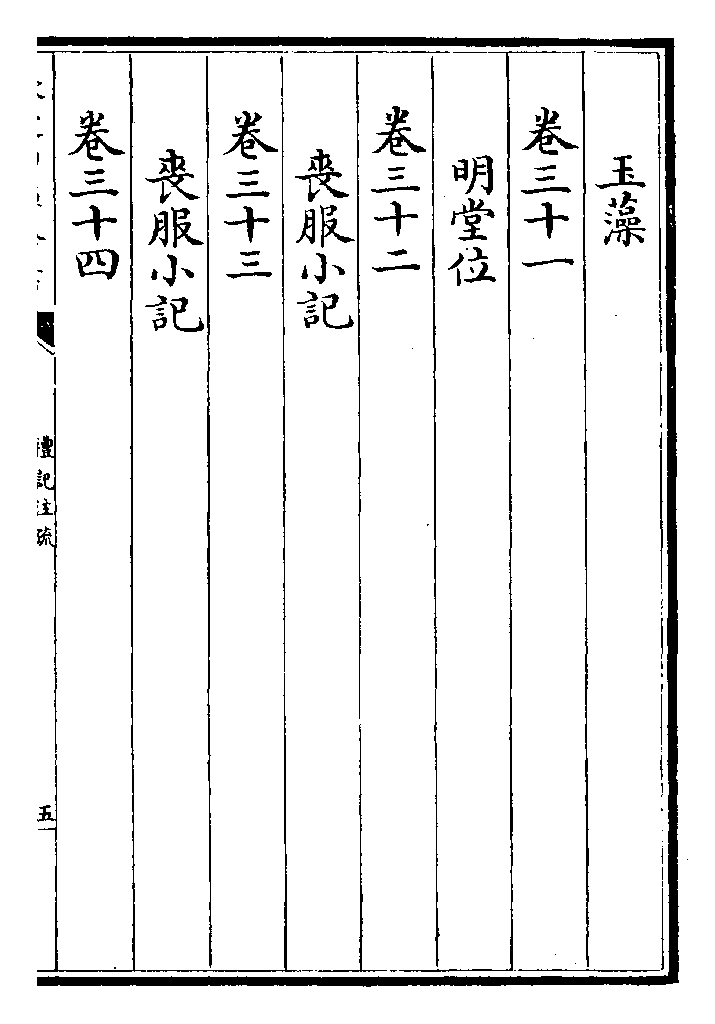 玉藻
卷三十一
明堂位
卷三十二
喪服小記
卷三十三
喪服小記
卷三十四
禮記注疏
五